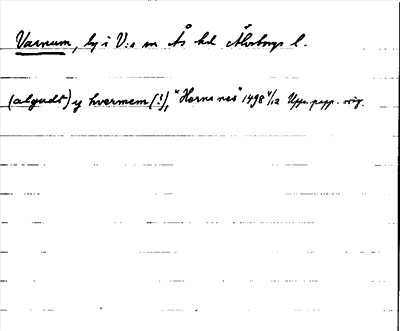 Varnum, by i V:a sn Ås hd Älvsborgs l.
(algudt) y hvernem (!), "Herne nes" 1498 4/12 Upps. papp. orig.